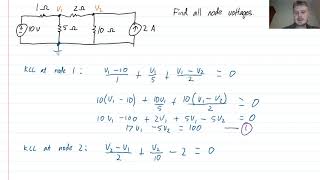 1 Ω V₁ 2 Ω V₂ Find all node voltages.
10V 5 Ω 10 Ω 2 A
KCL at node 1: (V₁-10)/1 + V₁/5 + (V₁-V₂)/2 = 0
10(V₁-10) + 10V₁/5 + 10(V₁-V₂)/2 = 0
10V₁ -100 + 2V₁ + 5V₁ -5V₂ = 0
17V₁ -5V₂ = 100 — ①
KCL at node 2: (V₂-V₁)/2 + V₂/10 - 2 = 0